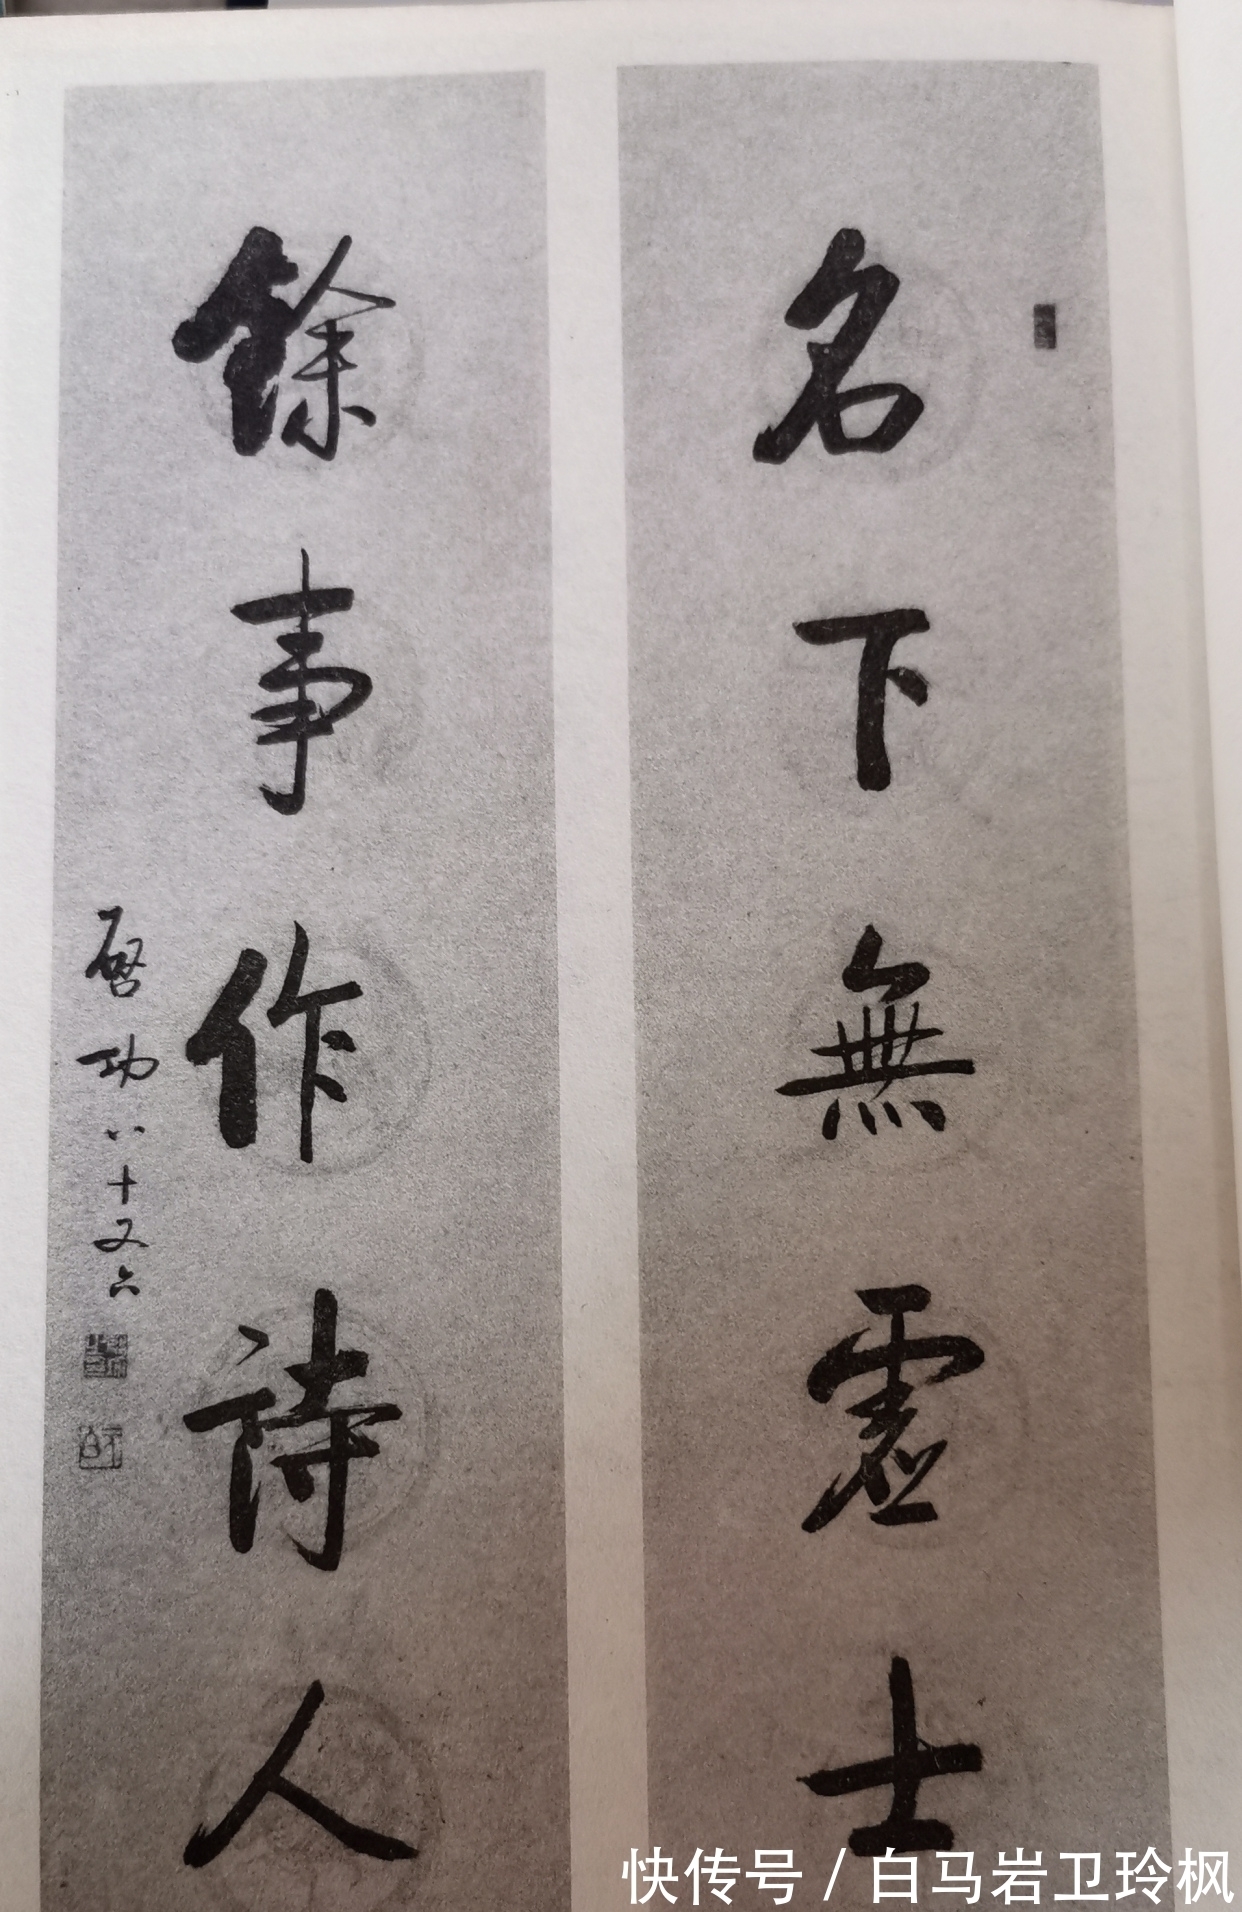 名下無虛士
餘事作詩人
啓功八十又六
快传号/白马岩卫玲枫